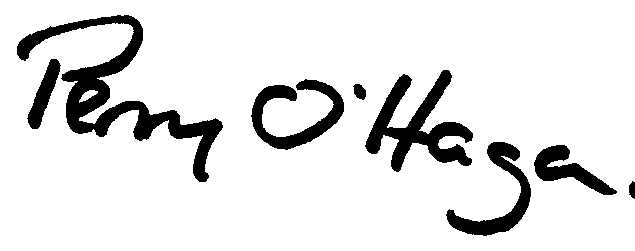 Perry O'Hagan.